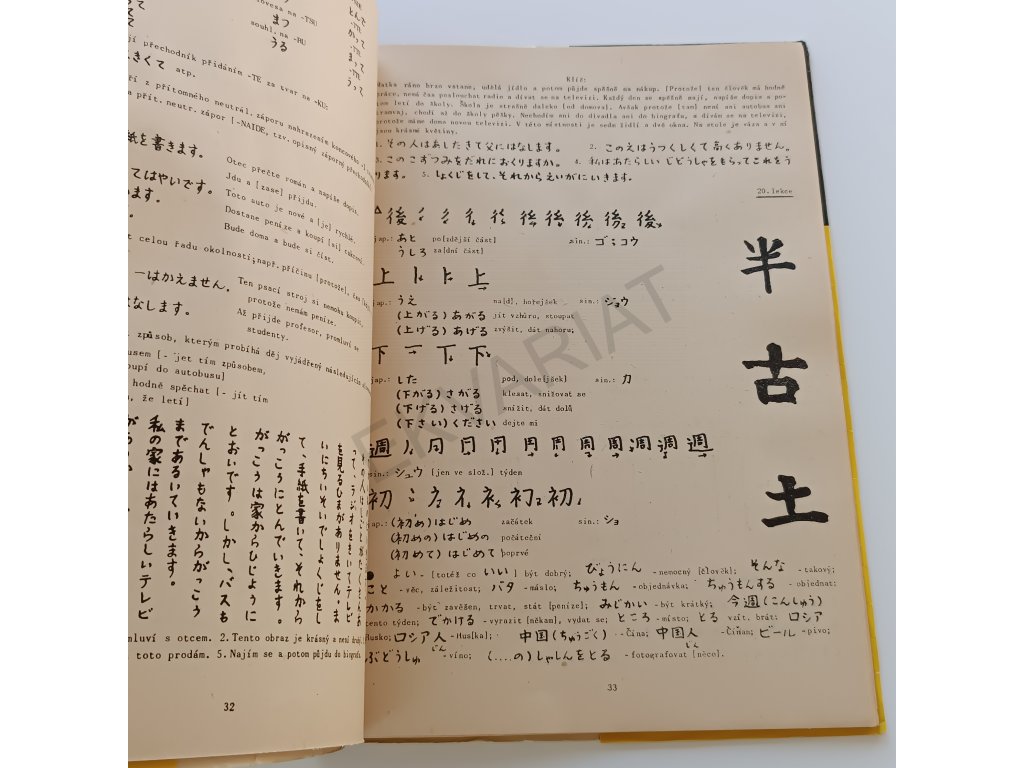 -TSU
まつ
souhl. na -BU
うる
とんで
-TE
かって
-TE
まって
-TSE
うって
jí přechodník přidáním -TE za tvar na -KU:
きくて atp.
ří z přítomného neutrál. záporu nahrazením koncového -I
přít. neutr. zápor [-NAIDE, tzv. opisný záporný přechodník
紙を書きます。
Otec přečte román a napíše dopis.
Jdu a [zase] přijdu.
てはやいです。
Toto auto je nové a [je] rychlé.
Dostane peníze a koupí [si] cukroví.
Bude doma a bude si číst.
t celou řadu okolností, např. příčinu [protože], čas
ーはかえません。
Ten psací stroj si nemohu koupit,
protože nemám peníze.
はなします。
Až přijde profesor, promluví se
studenty.
způsob, kterým probíhá děj vyjádřený následujícím
usem [- jet tím způsobem,
oupí do autobusu]
hodně spěchat [- jít tím
že letí]
って、ラジオをきいてテレビ
を見るひまがありません。ま
いにちいそいでしょくじをし
て、手紙を書いて、それから
がっこうにとんでいきます。
がっこうは家からひじょうに
とおいです。しかし、バスも
でんしゃもないからがっこう
まであるいていきます。
私の家にはあたらしいテレビ
mluví s otcem. 2. Tento obraz je krásný a není drahý.
toto prodám. 5. Najím se a potom půjdu do biografu.
32
Klíč:
Matka ráno brzo vstane, udělá jídlo a potom půjde spěšně na nákup. [Protože] ten člověk má hodně
práce, nemá čas poslouchat radio a dívat se na televizi. Každý den se spěšně nají, napíše dopis a po-
tom letí do školy. Škola je strašně daleko [od domova]. Avšak protože [tam] není ani autobus ani
tramvaj, chodí až do školy pěšky. Nechodím ani do divadla ani do biografu, a dívám se na televizi,
protože máme doma novou televizi. V této místnosti je sedm židlí a dvě okna. Na stole je váza a v ní
jsou krásné květiny.
1. その人はあしたきて父にはなします。 2. このえはうつくしくて高くありません。
3. このこずつみをだれにおくりますか。 4. 私はあたらしいじどうしゃをもらってこれをう
ります。 5. しょくじをして、それからえいがにいきます。
20. lekce
後
jap.: あと po[zdější část] sin.: ゴ; コウ
うしろ za[dní část]
上
jap.: うえ na[d], hořejšek sin.: ジョウ
(上がる) あがる jít vzhůru, stoupat
(上げる) あげる zvýšit, dát nahoru;
下
jap.: した pod, dole[jšek] sin.: カ
(下がる) さがる klesat, snižovat se
(下げる) さげる snížit, dát dolů
(下さい) ください dejte mi
週
sin.: シュウ [jen ve slož.] týden
初
jap.: (初め) はじめ začátek sin.: ショ
(初めの) はじめの počáteční
(初めて) はじめて poprvé
半
古
土
よい - [totéž co いい] být dobrý; びょうにん - nemocný [člověk]; そんな - takový;
こと - věc, záležitost; バタ - máslo; ちゅうもん - objednávka; ちゅうもんする - objednat;
かかる - být zavěšen, trvat, stát [peníze]; みじかい - být krátký; 今週 (こんしゅう)
tento týden; でかける - vyrazit [někam], vydat se; ところ - místo; とる vzít, brát; ロシア
Rusko; ロシア人 - Rus[ka]; 中国 (ちゅうごく) - Čína; 中国人 - Číňan; ビール - pivo;
じん
じん
ぶどうしゅ - víno; (....の) しゃしんをとる - fotografovat [něco].
33